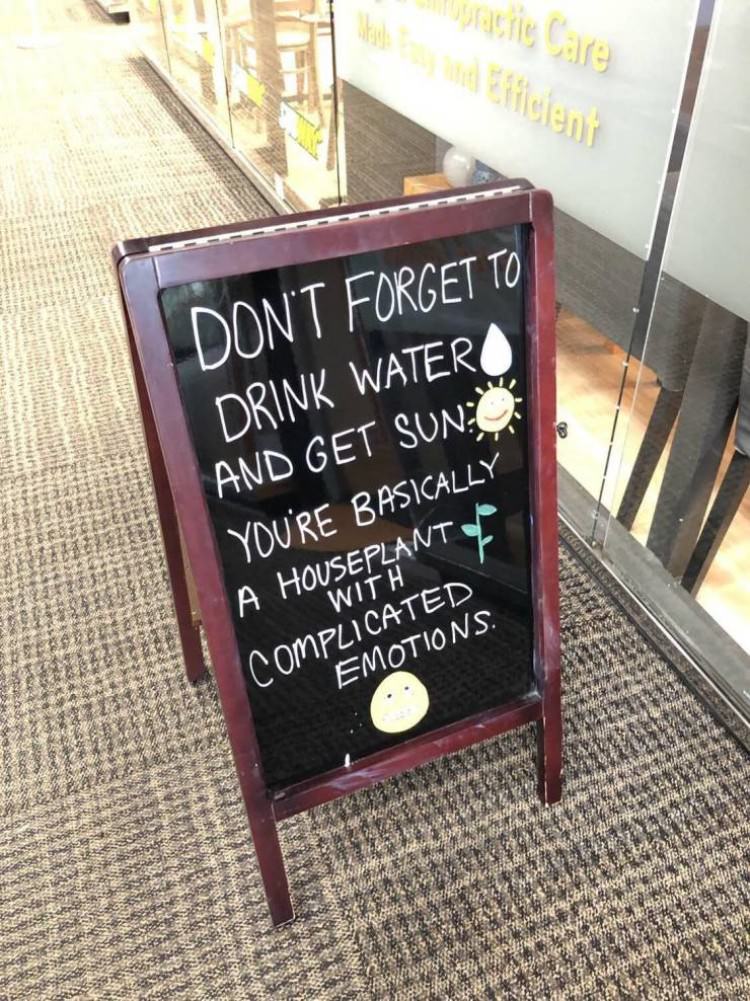 Chiropractic Care
Made Easy and Efficient
DON'T FORGET TO
DRINK WATER
AND GET SUN.
YOU'RE BASICALLY
A HOUSEPLANT
WITH
COMPLICATED
EMOTIONS.